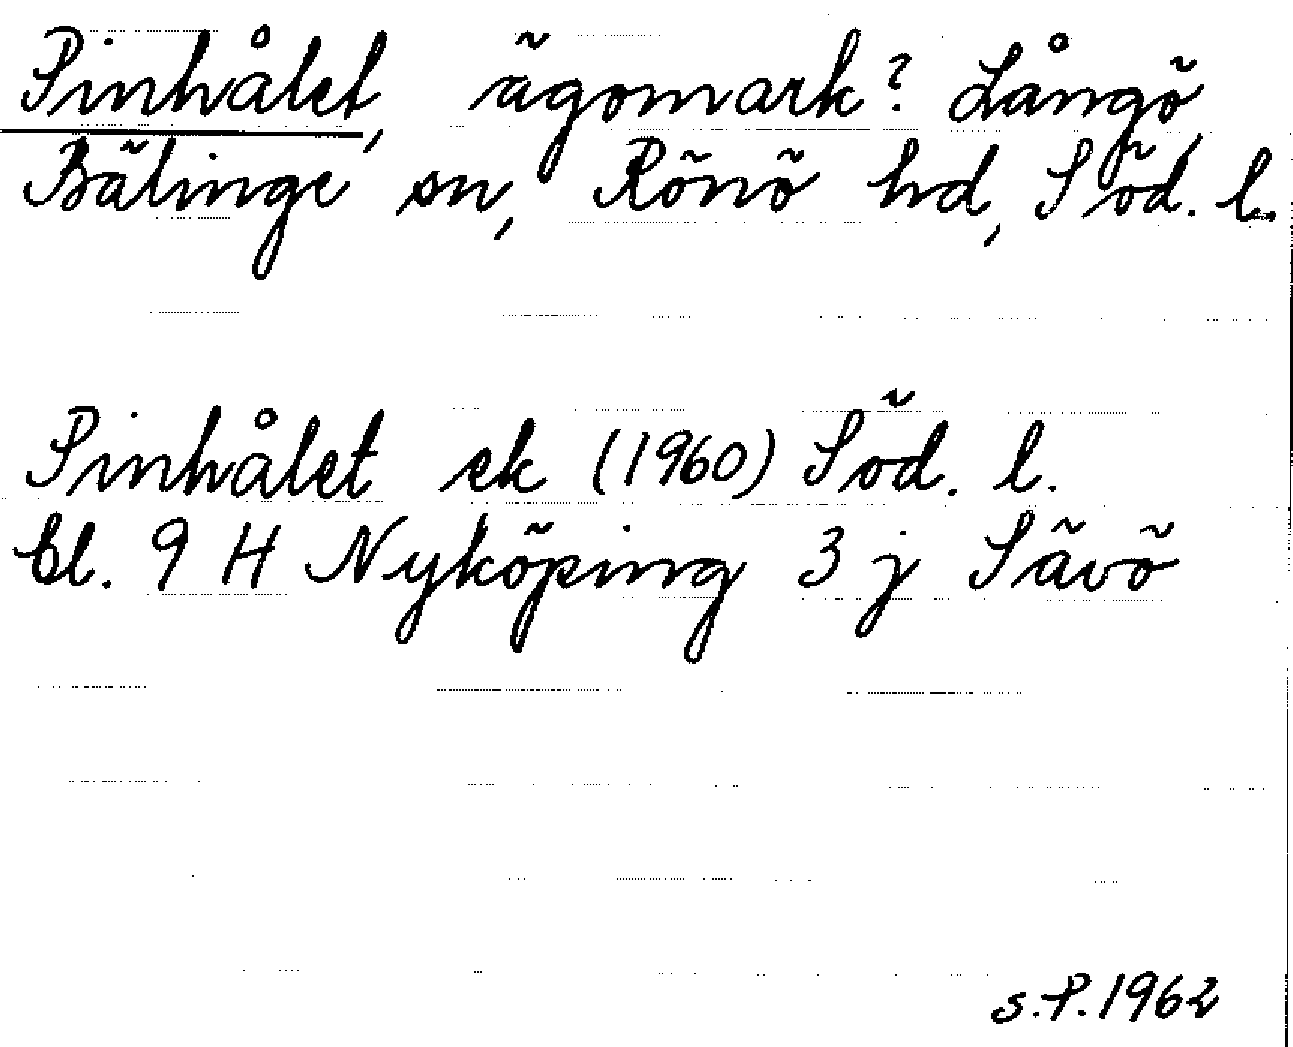 Pinhålet, ägomark? Långö,
Bälinge sn, Rönö hd, Söd. l.
Pinhålet ek (1960) Söd. l.
bl. 9 H Nyköping 3 j Sävö
S.P. 1962